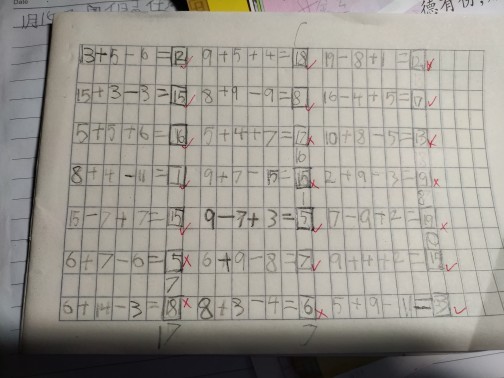 13+5-6=12 9+5+4=18 19-8+1=12
15+3-3=15 8+9-9=8 16-4+5=17
5+5+6=16 5+4+7=17 10+8-5=13
16
9+7-15=15 2+9-3=9
1 8
15-7+7=15 9-7+3=5
6+7-6=5 6+9-8=7 9+4+2=15
7
6+14-3=18 8+3-4=6 5+9-11=3
17 7